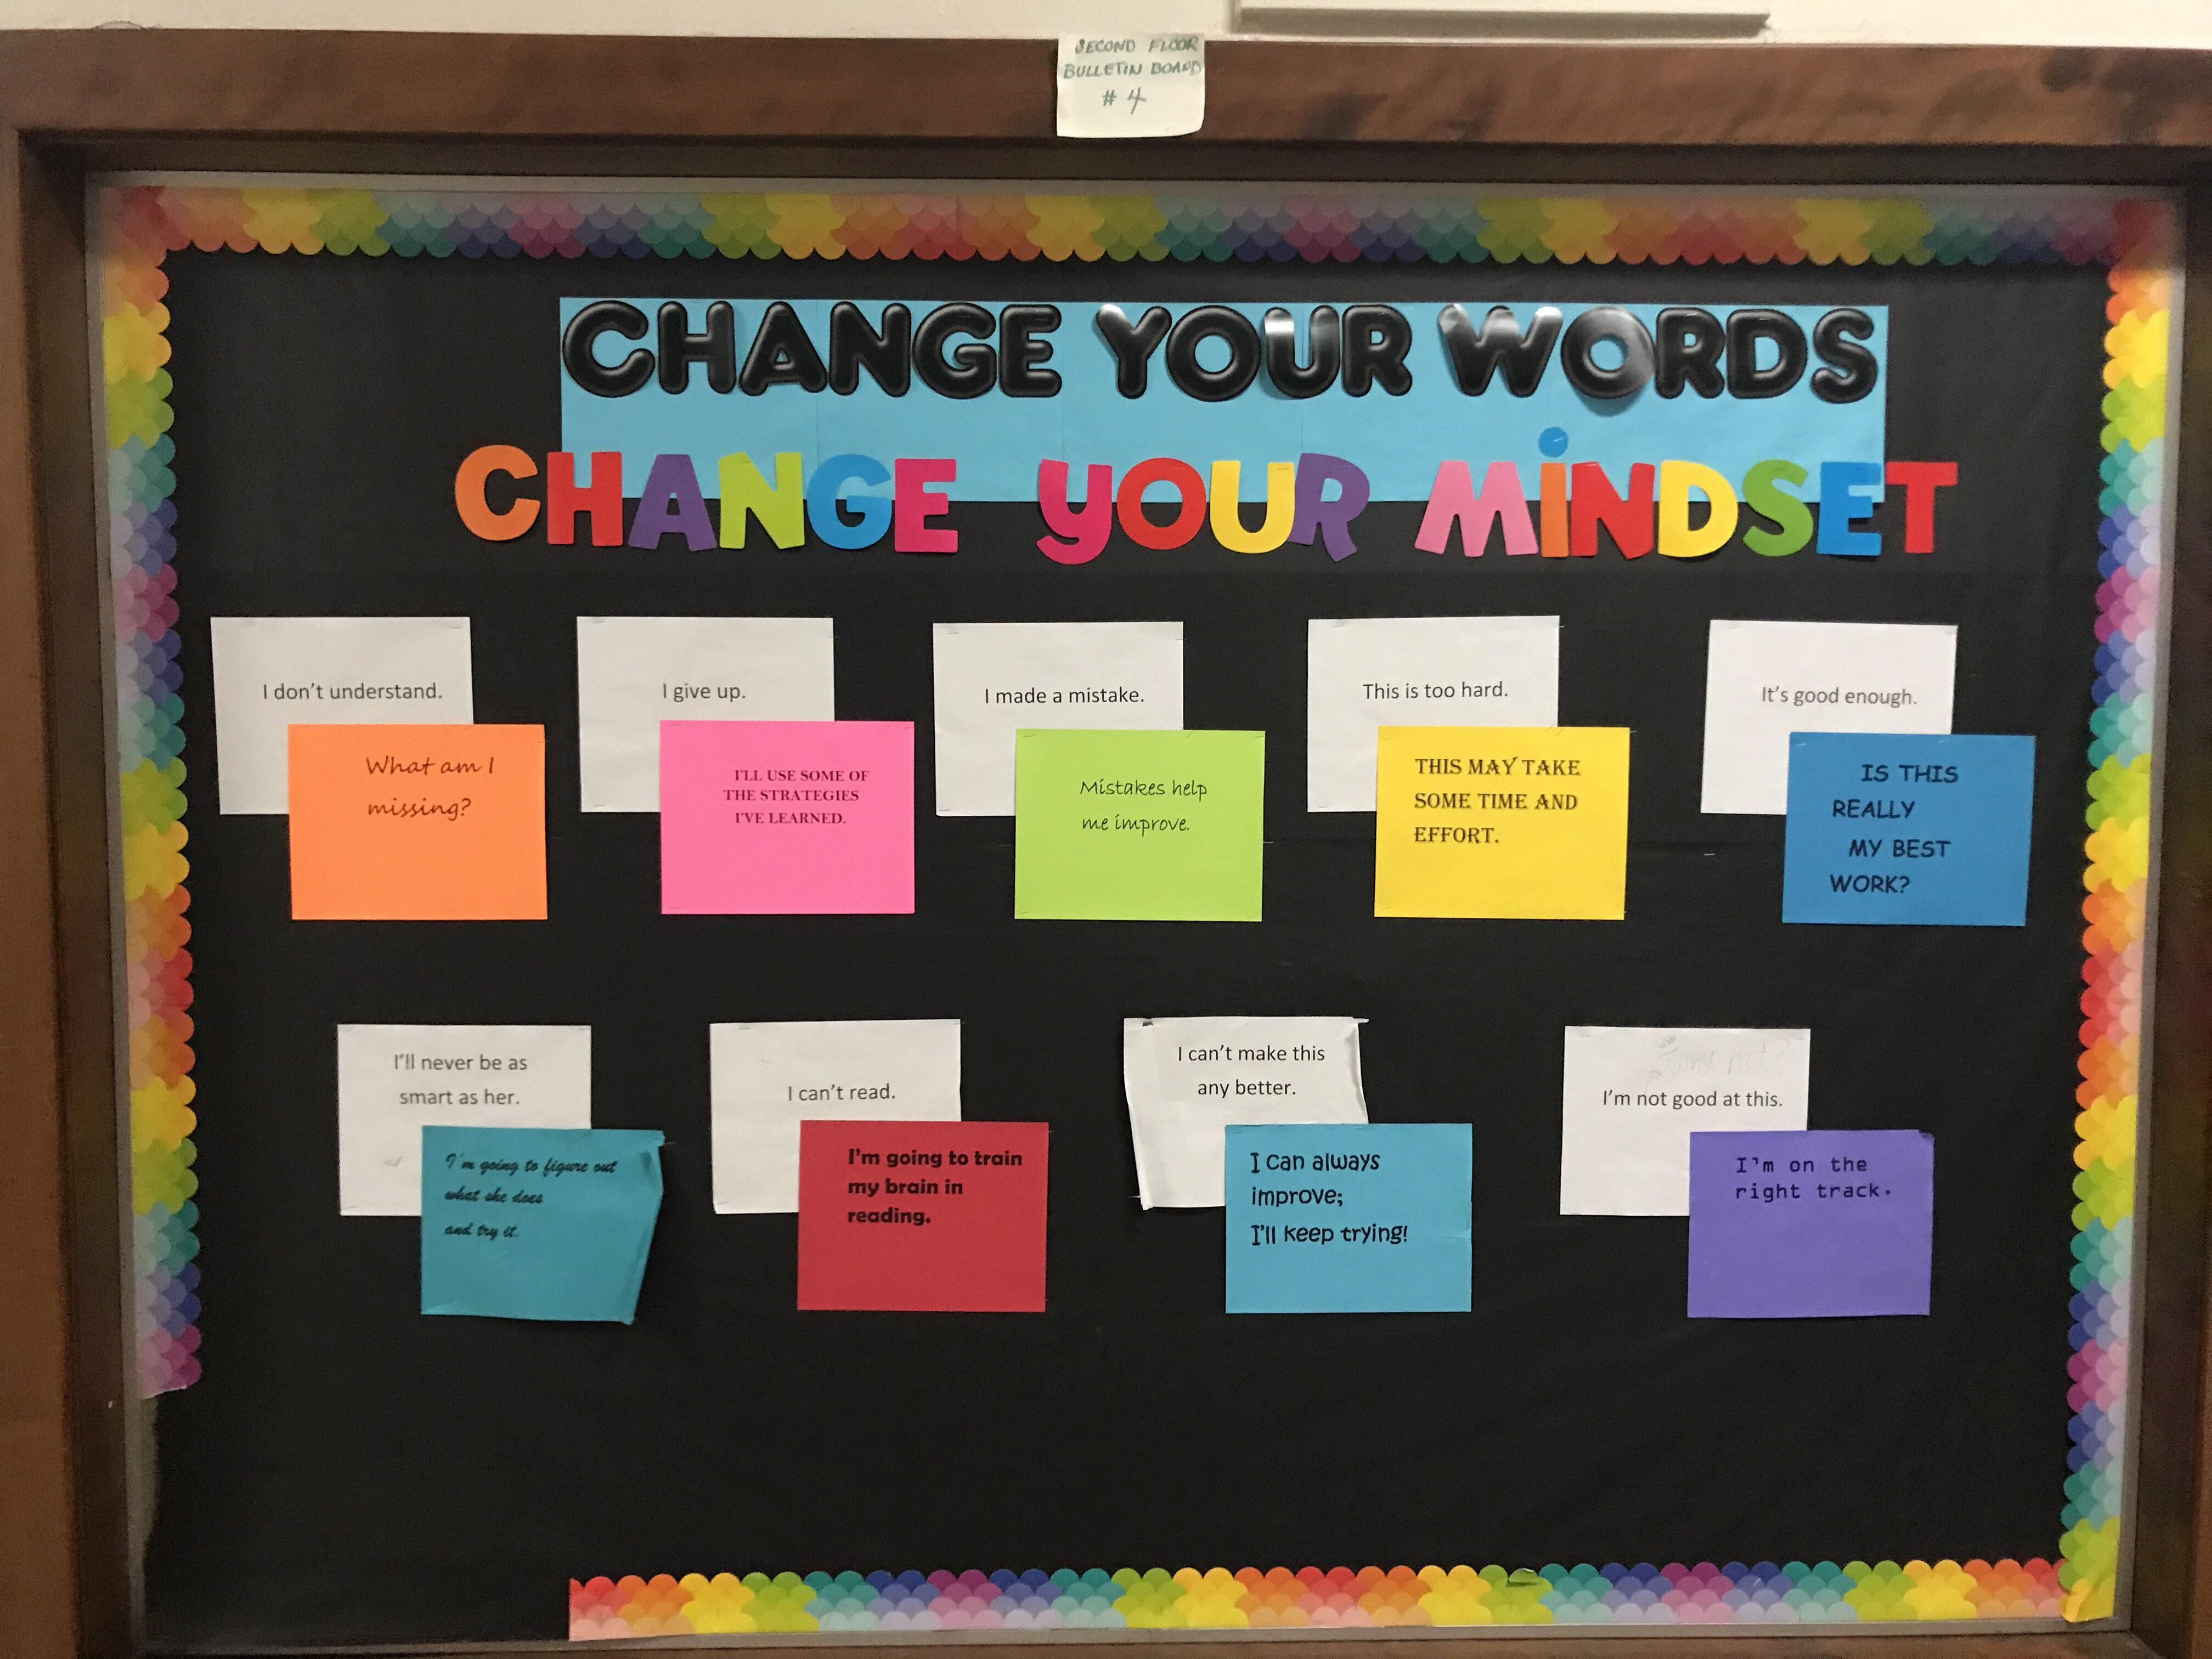 SECOND FLOOR
BULLETIN BOARD
# 4
CHANGE YOUR WORDS
CHANGE YOUR MiNDSET
I don't understand.
What am I
missing?
I give up.
I'LL USE SOME OF
THE STRATEGIES
I'VE LEARNED.
I made a mistake.
Mistakes help
me improve.
This is too hard.
THIS MAY TAKE
SOME TIME AND
EFFORT.
It's good enough.
IS THIS
REALLY
MY BEST
WORK?
I'll never be as
smart as her.
I'm going to figure out
what she does
and try it.
I can't read.
I'm going to train
my brain in
reading.
I can't make this
any better.
I can always
improve;
I'll keep trying!
I'm not good at this.
I'm on the
right track.